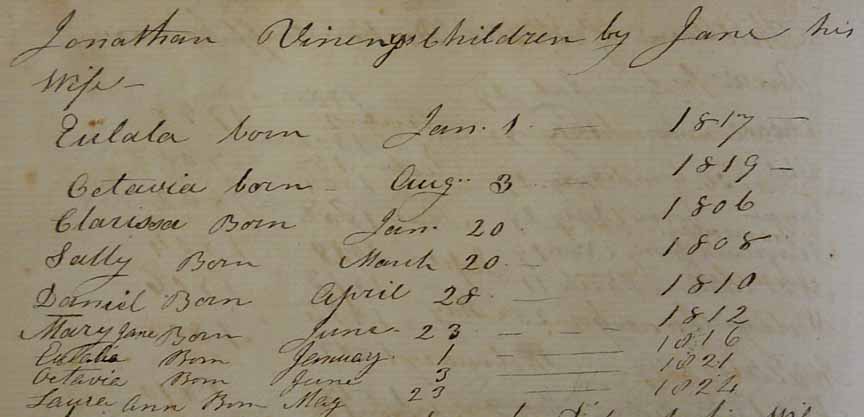 Jonathan Vinenys Children by Jane his
Wife -
Eulala born Jan. 1 - 1817 -
Octavia born - Aug. 3 - 1819 -
Clarissa Born Jan. 20 1806
Sally Born March 20 - 1808
Daniel Born April 28 - 1810
Mary Jane Born June - 23 - - - 1812
Eulalia Born January 1 - 1816
Octavia Born June 3 - 1821
Laura Ann Born May 23 - 1824